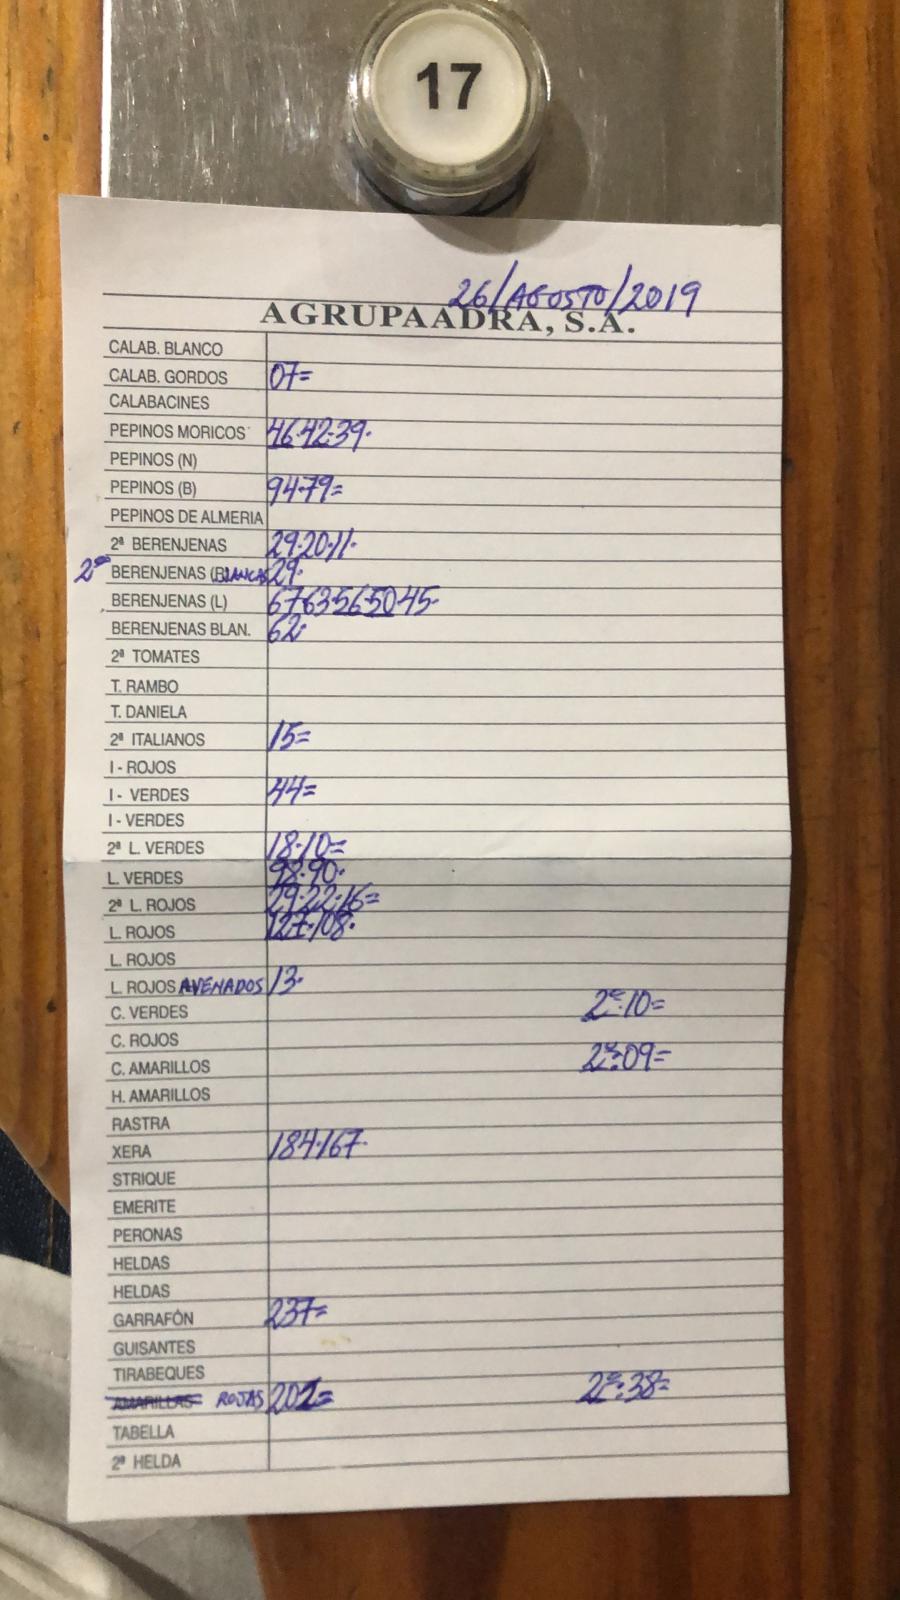 17
26/AGOSTO/2019
AGRUPAADRA, S.A.
CALAB. BLANCO
CALAB. GORDOS 07=
CALABACINES
PEPINOS MORICOS 46·42·39·
PEPINOS (N)
PEPINOS (B) 94·79=
PEPINOS DE ALMERIA
2ª BERENJENAS 29·20·11·
2ª BERENJENAS (BLANCAS 29·
BERENJENAS (L) 67·63·56·50·45·
BERENJENAS BLAN. 62·
2ª TOMATES
T. RAMBO
T. DANIELA
2ª ITALIANOS 15=
I - ROJOS
I - VERDES 44=
I - VERDES
2ª L. VERDES 18·10=
L. VERDES 98·90·
2ª L. ROJOS 29·22·16=
L. ROJOS 127·108·
L. ROJOS
L. ROJOS AVENADOS 13·
C. VERDES 2ª:10=
C. ROJOS
C. AMARILLOS 2ª:09=
H. AMARILLOS
RASTRA
XERA 184·167·
STRIQUE
EMERITE
PERONAS
HELDAS
HELDAS
GARRAFÓN 237=
GUISANTES
TIRABEQUES
AMARILLAS ROJAS 202= 2ª:38=
TABELLA
2ª HELDA